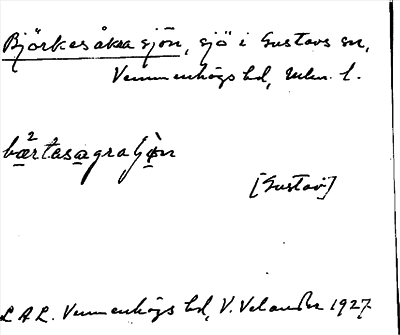 Björkesåkrasjön, sjö i Gustavs sn,
Vemmenhögs hd, Mlm. l.
bærtasagraʃøn
[Gustav]
L A L. Vemmenhögs hd, V. Velander 1927.